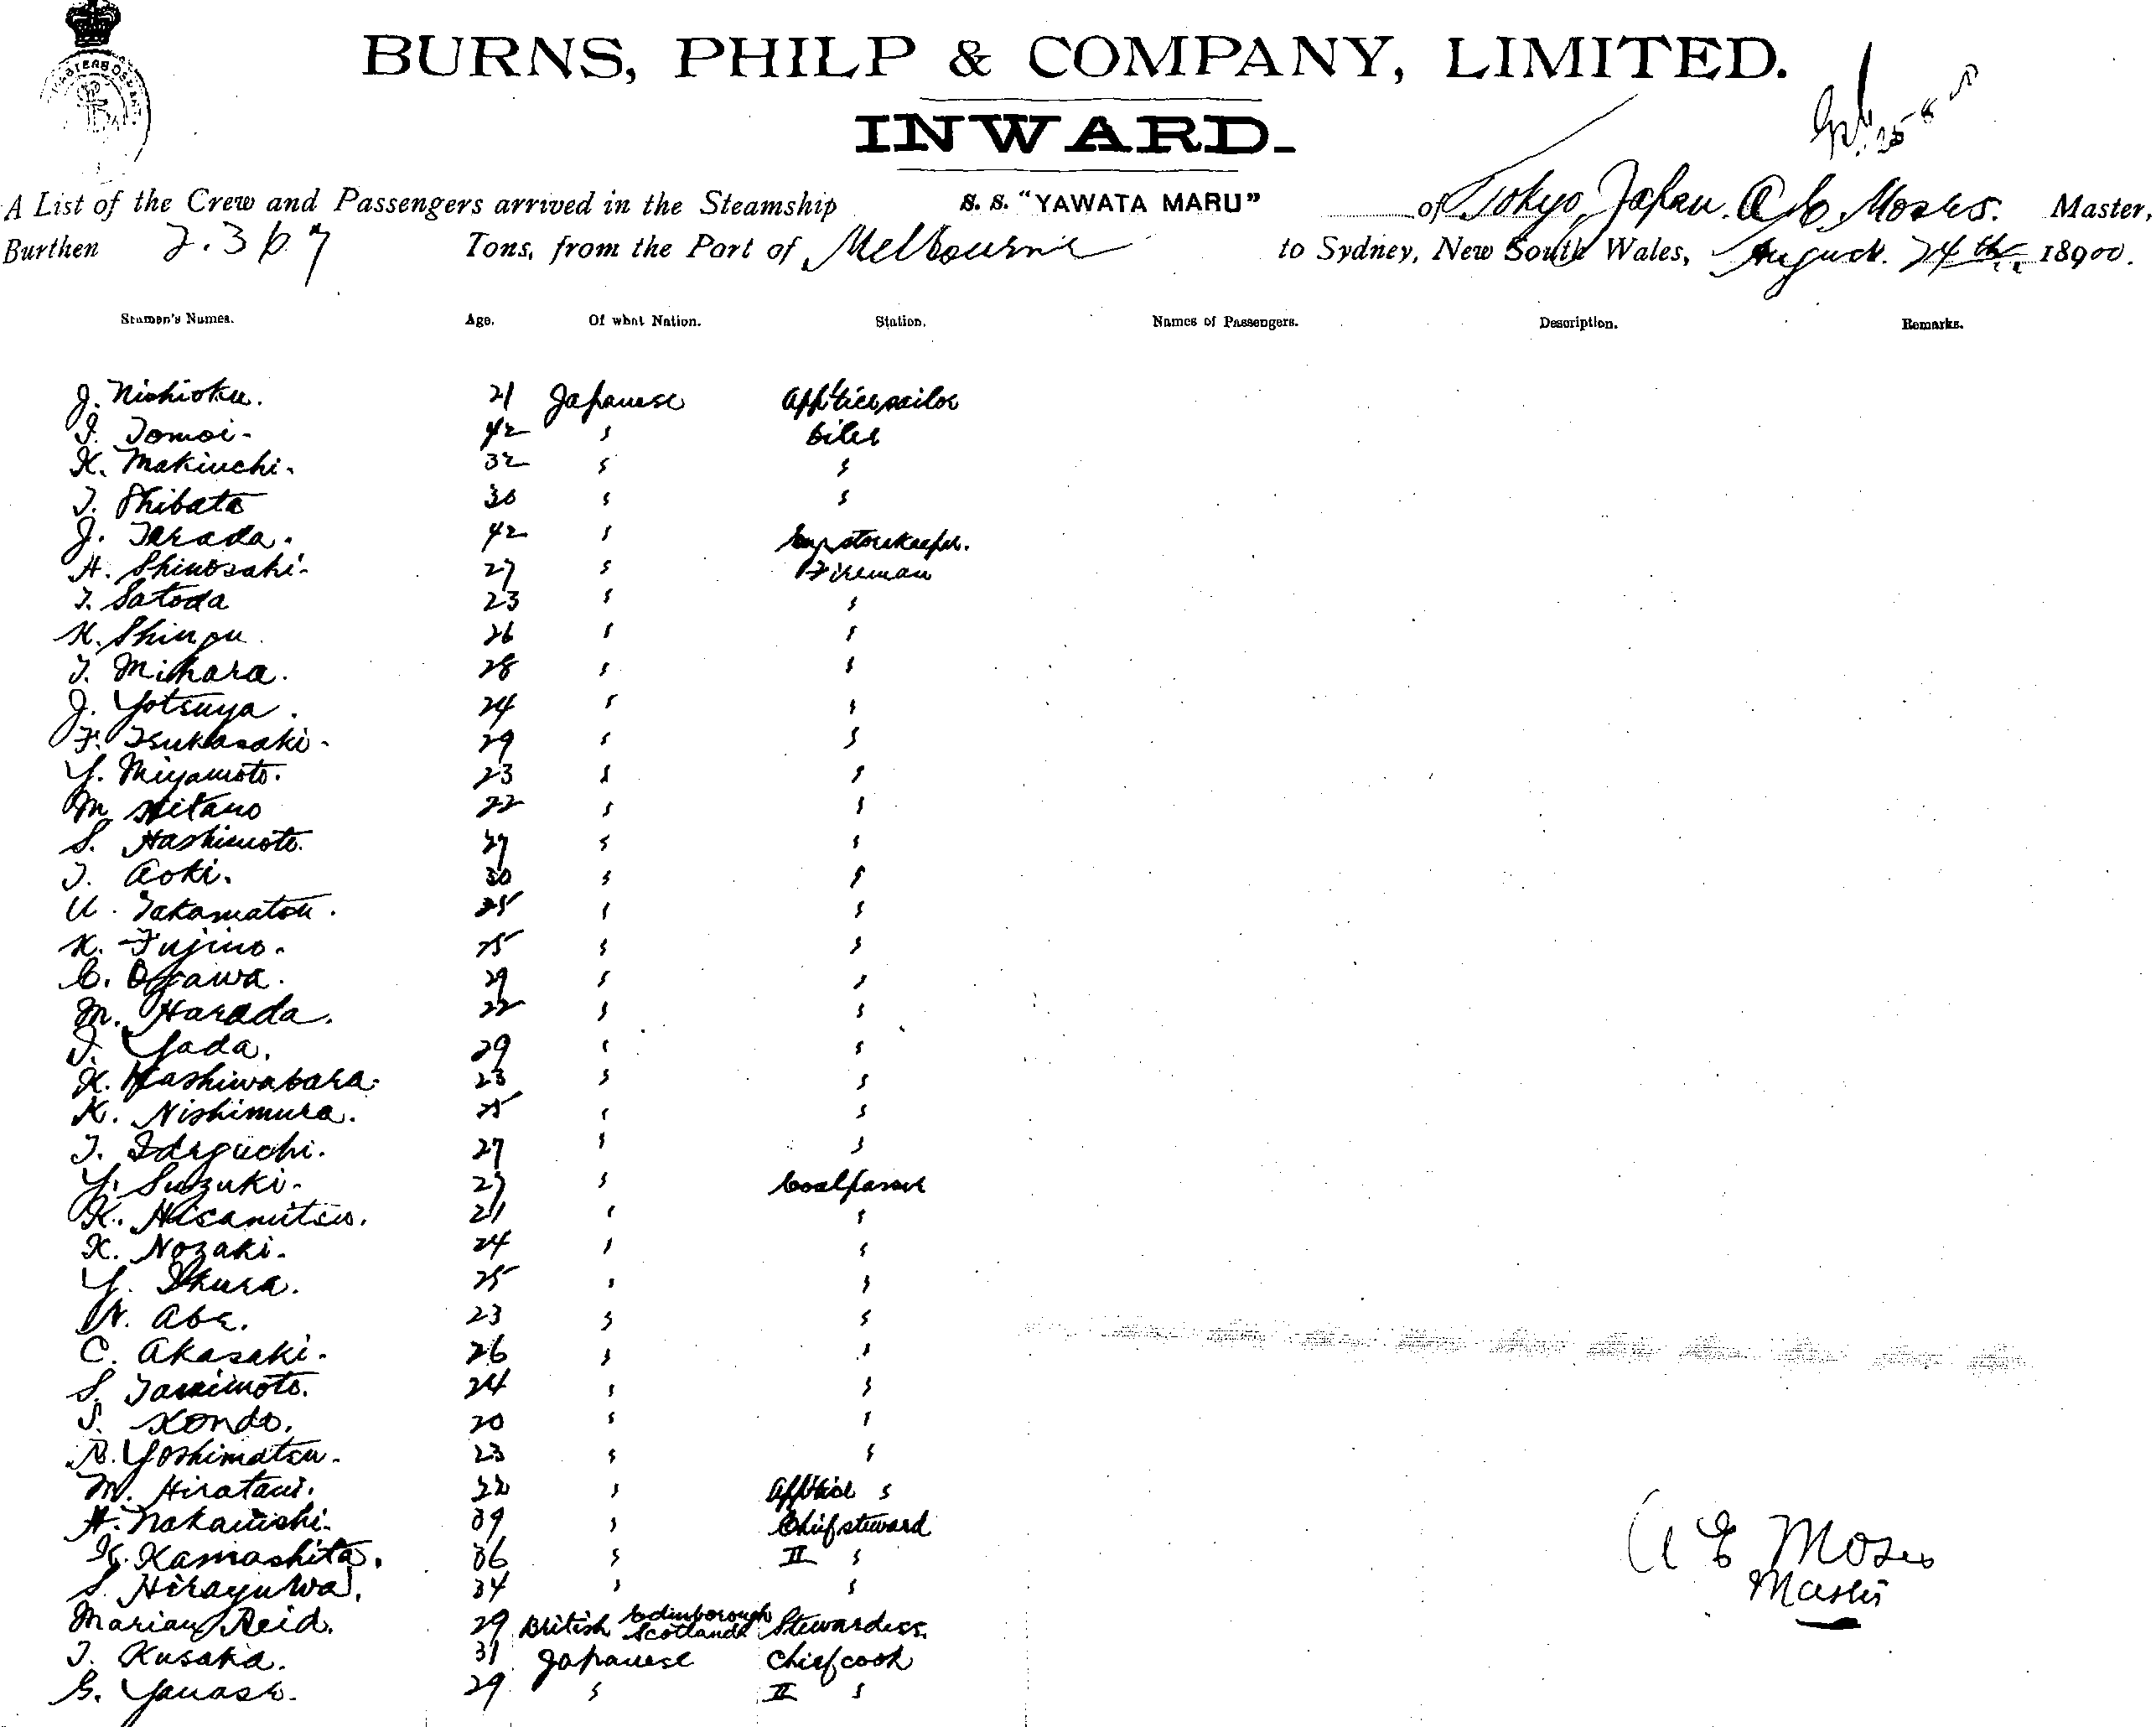 BURNS, PHILP & COMPANY, LIMITED.
INWARD.
A List of the Crew and Passengers arrived in the Steamship S. S. "YAWATA MARU" of Tokyo, Japan. A. E. Moses. Master,
Burthen 2.367 Tons, from the Port of Melbourne to Sydney, New South Wales, August. 24th 18900.
Seamen's Names. Age. Of what Nation. Station. Names of Passengers. Description. Remarks.
J. Nishioku. 21 Japanese App'tice sailor
I. Tomoi- 42 " Oiler
K. Makiuchi. 32 " "
T. Shibata 30 " "
J. Terada. 42 " storekeeper.
H. Shinosaki- 27 " Fireman
T. Satoda 23 " "
K. Shingu 26 " "
T. Mihara. 28 " "
J. Yotsuya. 24 " "
F. Tsukasaki- 29 " "
Y. Miyamoto. 23 " "
M. Kitano 22 " "
S. Hashimoto. 27 " "
T. Aoki. 30 " "
U. Takamatsu. 25 " "
K. Fujino. 25 " "
C. Ogawa. 29 " "
M. Harada. 22 " "
I. Yada. 29 " "
K. Kashiwabara. 23 " "
K. Nishimura. 25 " "
T. Ideguchi. 27 " "
Y. Suzuki. 27 " Coalpasser
K. Hisamitsu. 21 " "
K. Nozaki. 24 " "
Y. Ikura. 25 " "
N. Abe. 23 " "
C. Akasaki. 26 " "
S. Tanimoto. 24 " "
S. Kondo. 20 " "
R. Yoshimatsu. 23 " "
M. Hiratani. 22 " App'tice "
H. Nakanishi. 39 " Chief steward
K. Kamashita. 36 " II "
S. Hirayuwa. 34 " "
Marian Reid. 29 British Edinborough Scotland Stewardess.
T. Kusaka. 31 Japanese Chief cook
G. Yanase. 29 " II "
A E Moses
Master